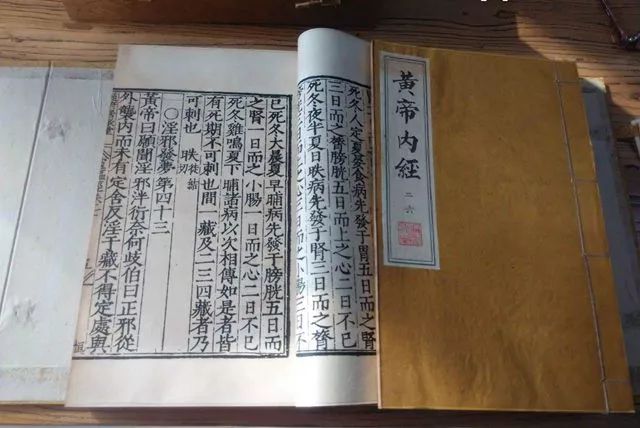 黃帝內經
二六
死冬人定夏晏食病先發于胃五日而之腎
三日而之膂膀胱五日而上之心二日不已
死冬夜半夏日昳病先發于腎三日而之膂
之心三日而之小腸三日
已死冬大晨夏早晡病先發于膀胱五日而
之腎一日而之小腸一日而之心二日不已
死冬雞鳴夏下晡諸病以次相傳如是者皆
有死期不可刺也間一藏及二三四藏者乃
可刺也 昳徒結切
○淫邪發夢第四十三
黃帝曰願聞淫邪泮衍奈何歧伯曰正邪從
外襲內而未有定舍反淫于藏不得定處與